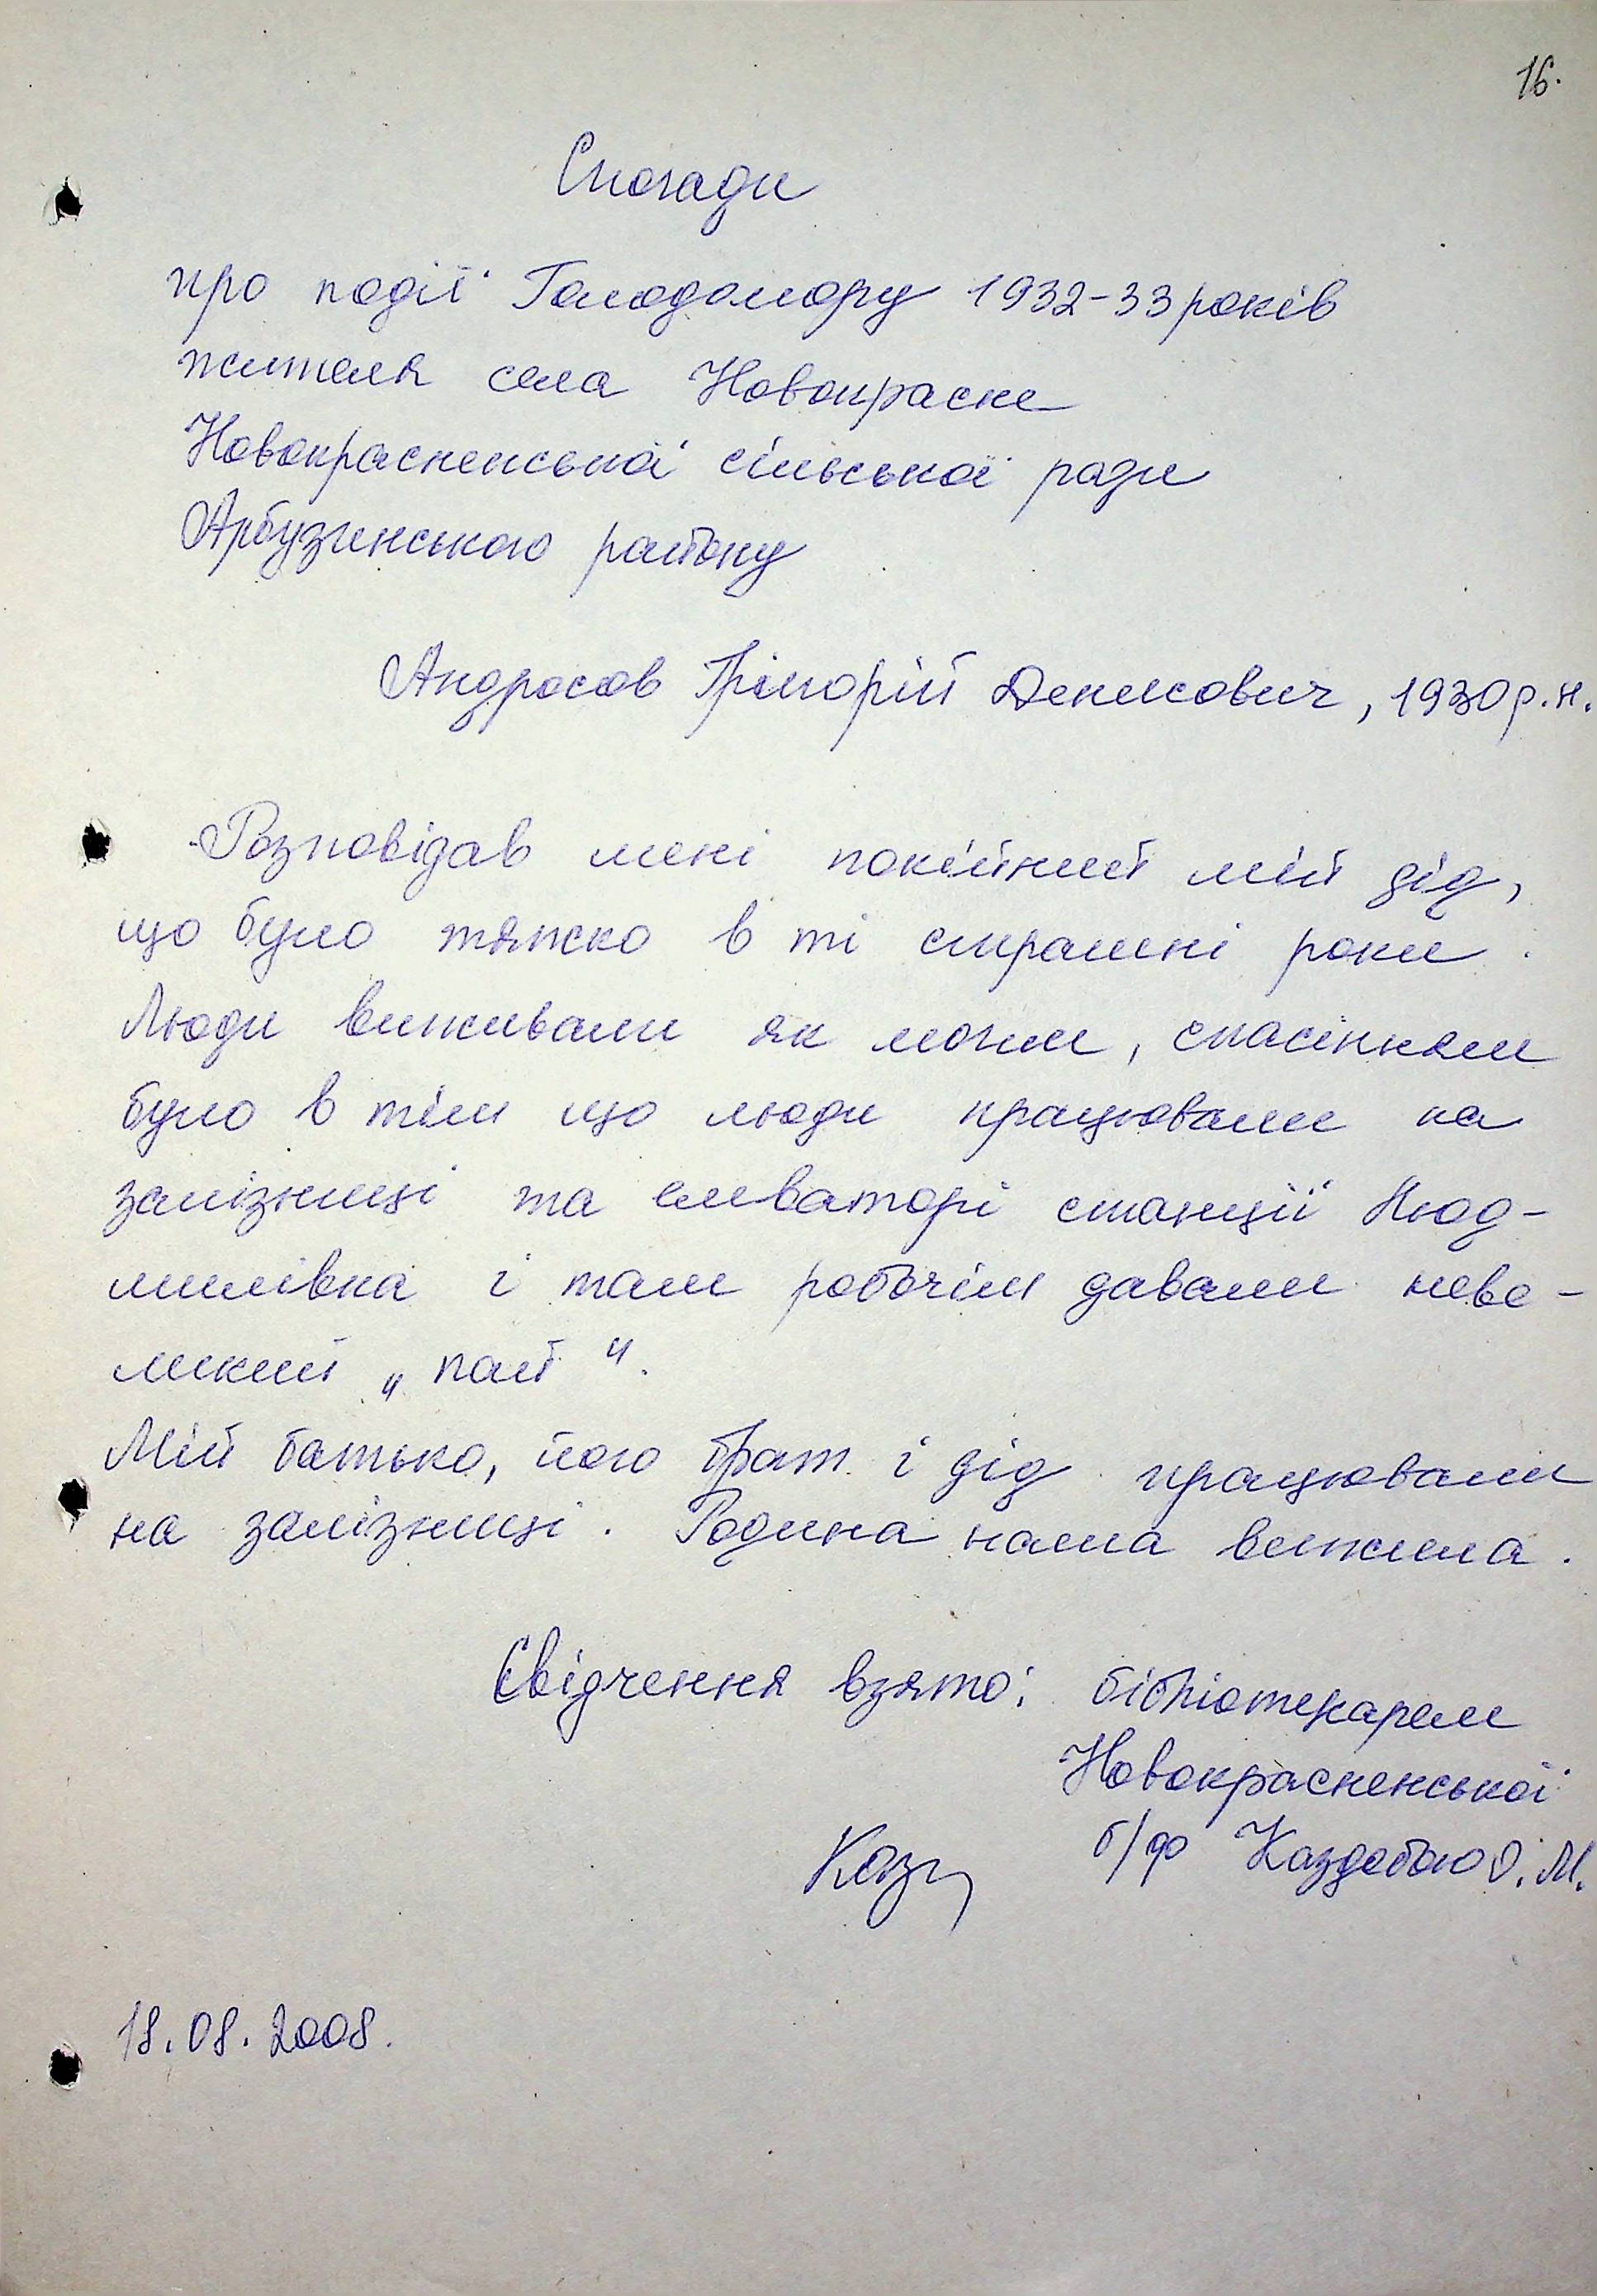 16.
Спогади
про події Голодомору 1932-33 років
жителя села Новокрасне
Новокрасненської сільської ради
Арбузинського району
Андросов Грігорій Денисович, 1930 р.н.
Розповідав мені покійний мій дід,
що було тяжко в ті страшні роки.
Люди виживали як могли, спасінням
було в тім що люди працювали на
залізниці та елеваторі станції Люд-
милівка і там робочім давали неве-
ликий „пай“.
Мій батько, його брат і дід працювали
на залізниці. Родина наша вижила.
Свідчення взято: бібліотекарем
Новокрасненської
б/ф Каздобою О.М.
18.08.2008.